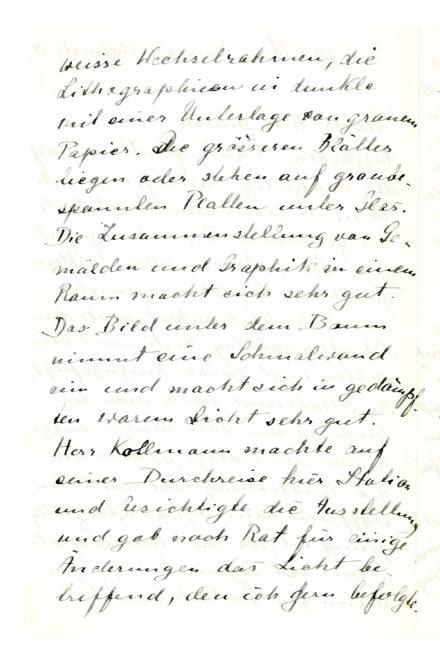 weisse Wechselrahmen, die
Lithographieen in dunkle
mit einer Unterlage von grauem
Papier. Die grösseren Blätter
liegen oder stehen auf graube-
spannten Platten unter Glas.
Die Zusammenstellung von Ge-
mälden und Graphik in einem
Raum macht sich sehr gut.
Das Bild unter dem Baum
nimmt eine Schmalwand
ein und macht sich in gedämpf-
ten warem Licht sehr gut.
Herr Kollmann machte auf
seiner Durchreise hier Station
und besichtigte die Ausstellung
und gab noch Rat für einige
Änderungen das Licht be-
treffend, den ich gern befolgte.